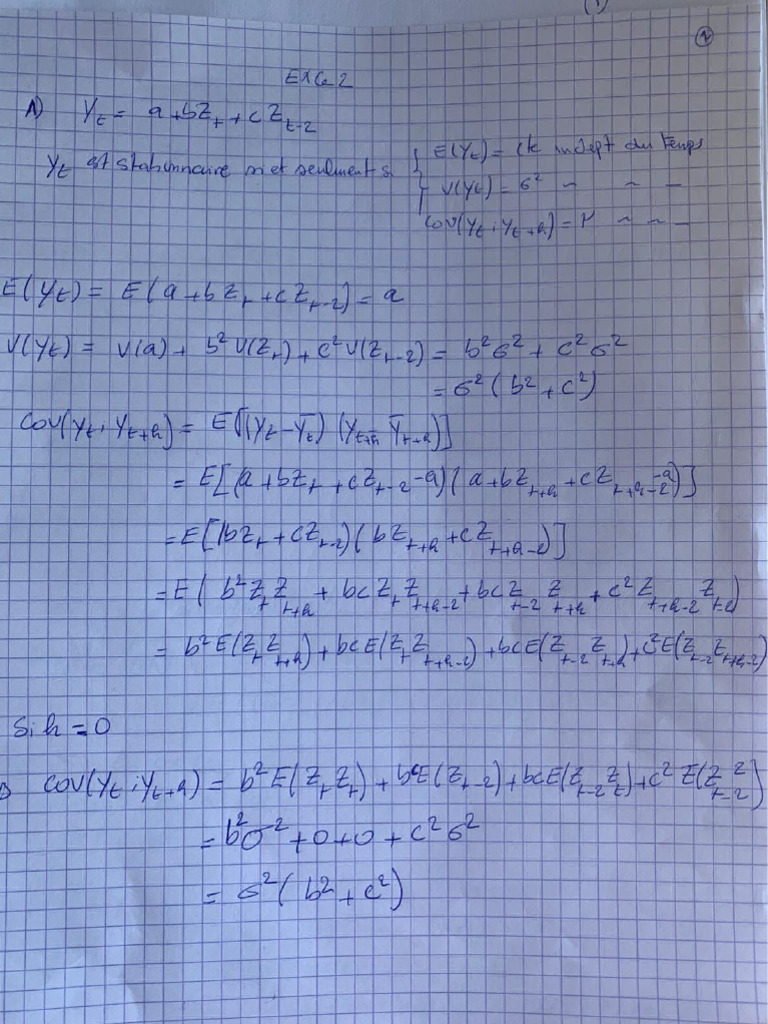 (1)
(2)
EXC 2
A) Y_t = a + bZ_t + cZ_{t-2}
Y_t est stationnaire si et seulment si { E(Y_t) = cte indept du temps
V(Y_t) = σ² ~ ~ —
cov(Y_t ; Y_{t+h}) = γ ~ ~ —
E(Y_t) = E(a + bZ_t + cZ_{t-2}) = a
V(Y_t) = V(a) + b²V(Z_t) + c²V(Z_{t-2}) = b²σ² + c²σ²
= σ²(b² + c²)
cov(Y_t, Y_{t+h}) = E[(Y_t - Ȳ_t)(Y_{t+h} - Ȳ_{t+h})]
= E[(a + bZ_t + cZ_{t-2} - a)(a + bZ_{t+h} + cZ_{t+h-2} - a)]
= E[(bZ_t + cZ_{t-2})(bZ_{t+h} + cZ_{t+h-2})]
= E(b²Z_t Z_{t+h} + bcZ_t Z_{t+h-2} + bcZ_{t-2} Z_{t+h} + c²Z_{t+h-2} Z_{t-2})
= b²E(Z_t Z_{t+h}) + bcE(Z_t Z_{t+h-2}) + bcE(Z_{t-2} Z_{t+h}) + c²E(Z_{t-2} Z_{t+h-2})
Si h = 0
cov(Y_t ; Y_{t+h}) = b²E(Z_t Z_t) + bcE(Z_{t-2}) + bcE(Z_{t-2} Z_t) + c²E(Z²_{t-2})
= b²σ² + 0 + 0 + c²σ²
= σ²(b² + c²)